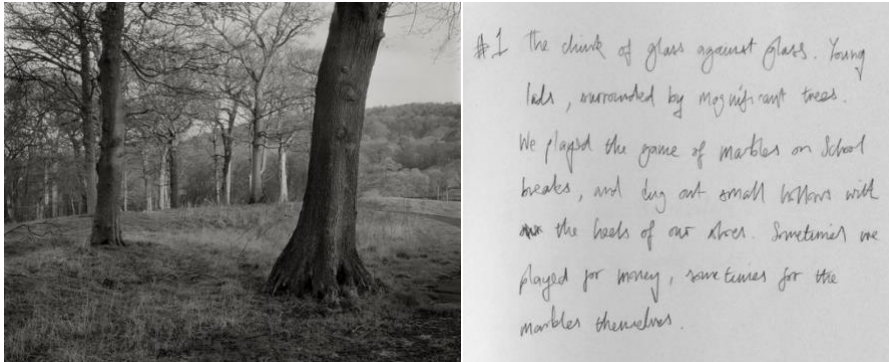 #1 The chink of glass against glass. Young
lads, surrounded by magnificant trees.
We played the game of marbles on School
breaks, and dug out small hollows with
the heels of our shoes. Sometimes we
played for money, sometimes for the
marbles themselves.